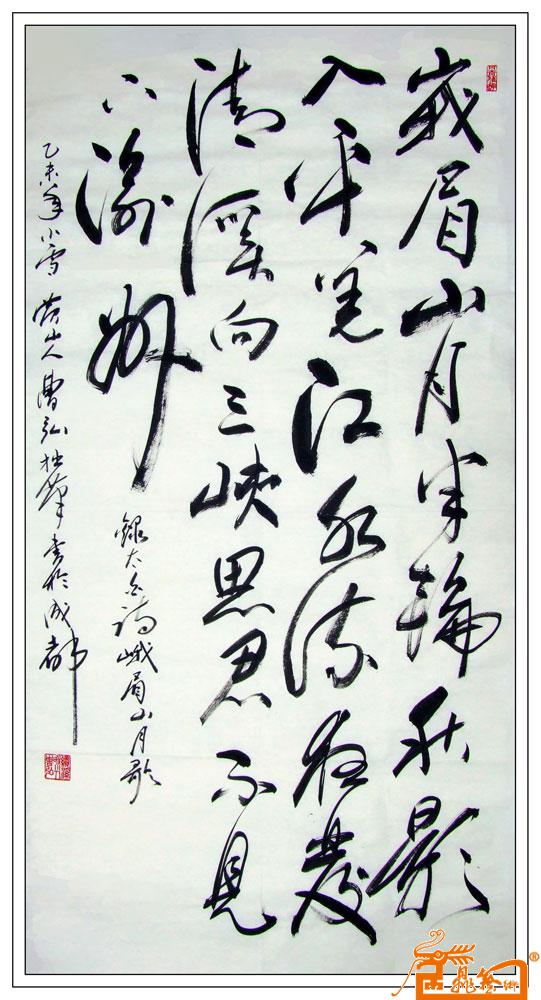 峩眉山月半輪秋影
入平羌江水流夜發
清溪向三峽思君不見
下渝州
錄太白詩峨眉山月歌
乙未年小雪 山人曹弘拙筆書於成都